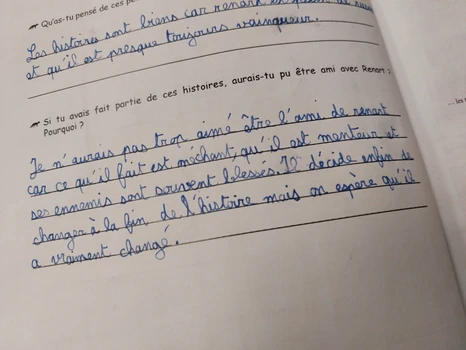 Qu'as-tu pensé de ces
Les histoires sont biens car renart
et qu'il est presque toujours vainqueur.
Si tu avais fait partie de ces histoires, aurais-tu pu être ami avec Renart ?
Pourquoi ?
Je n'aurais pas trop aimé être l'ami de renart
car ce qu'il fait est méchant, qu'il est menteur et
ses ennemis sont souvent blessés. Il décide enfin de
changer à la fin de l'histoire mais on espère qu'il
a vraiment changé.